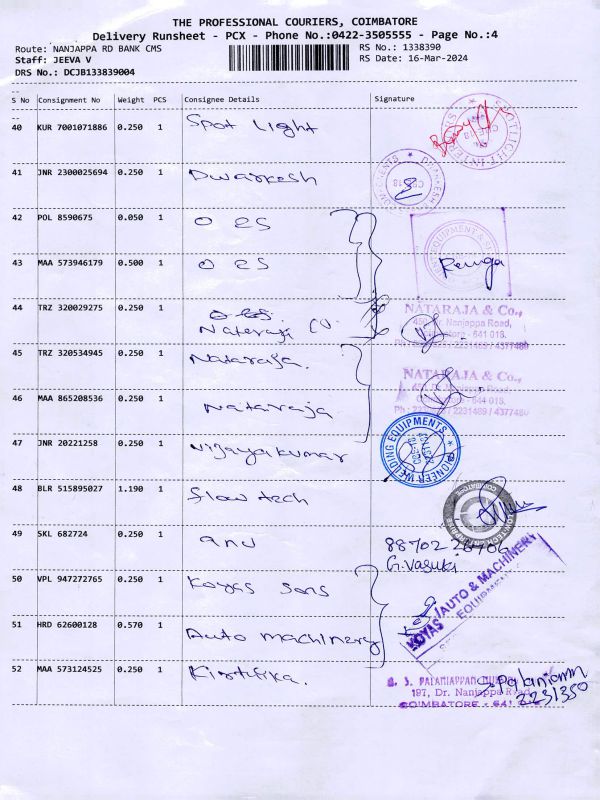 THE PROFESSIONAL COURIERS, COIMBATORE
Delivery Runsheet - PCX - Phone No.:0422-3505555 - Page No.:4
Route: NANJAPPA RD BANK CMS
RS No.: 1338390
Staff: JEEVA V
RS Date: 16-Mar-2024
DRS No.: DCJB133839004
S No Consignment No Weight PCS Consignee Details Signature
40 KUR 7001071886 0.250 1 Spot Light
41 JNR 2300025694 0.250 1 Dwarkesh
42 POL 8590675 0.050 1 O ES
43 MAA 573946179 0.500 1 O ES Renga
44 TRZ 320029275 0.250 1 Nataraja Co.
NATARAJA & Co.,
451, Dr. Nanjappa Road,
Coimbatore - 641 018.
45 TRZ 320534945 0.250 1 Nataraja.
NATARAJA & Co.,
46 MAA 865208536 0.250 1 Nataraja
47 JNR 20221258 0.250 1 Vijayakumar
PIONEER WELDING EQUIPMENTS
48 BLR 515895027 1.190 1 flow tech
49 SKL 682724 0.250 1 anu
G. Vasuki
50 VPL 947272765 0.250 1 Koyas sons
KOYAS AUTO & MACHINERY
51 HRD 62600128 0.570 1 Auto machinery
52 MAA 573124525 0.250 1 Kirthika.
197, Dr. Nanjappa Road
2231350
COIMBATORE - 641